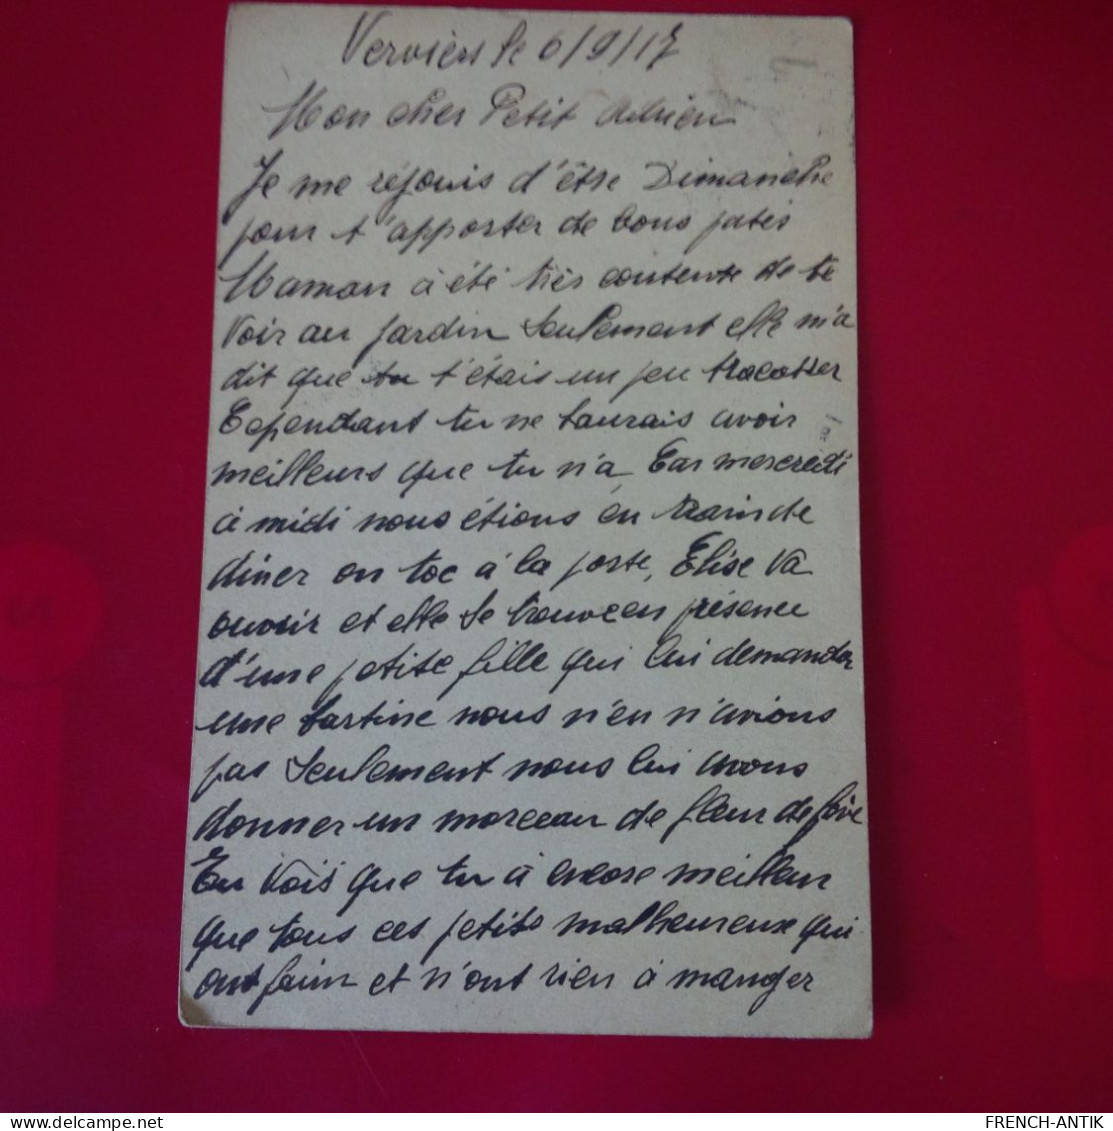 Verviers le 6/9/17
Mon cher Petit Adrien
Je me réjouis d'être Dimanche
pour t'apporter de bons patés
Maman à été très contente de te
voir au jardin seulement elle m'a
dit que tu t'étais un peu tracasser
Cependant tu ne saurais avoir
meilleurs que tu n'a Car mercredi
à midi nous étions en train de
diner on toc à la porte, Elise va
ouvrir et elle se trouve en présence
d'une petite fille qui lui demander
une tartine nous n'en n'avions
pas seulement nous lui avons
donner un morceau de fleur de
Tu vois que tu à encore meilleur
que tous ces petits malheureux qui
ont faim et n'ont rien à manger
FRENCH-ANTIK